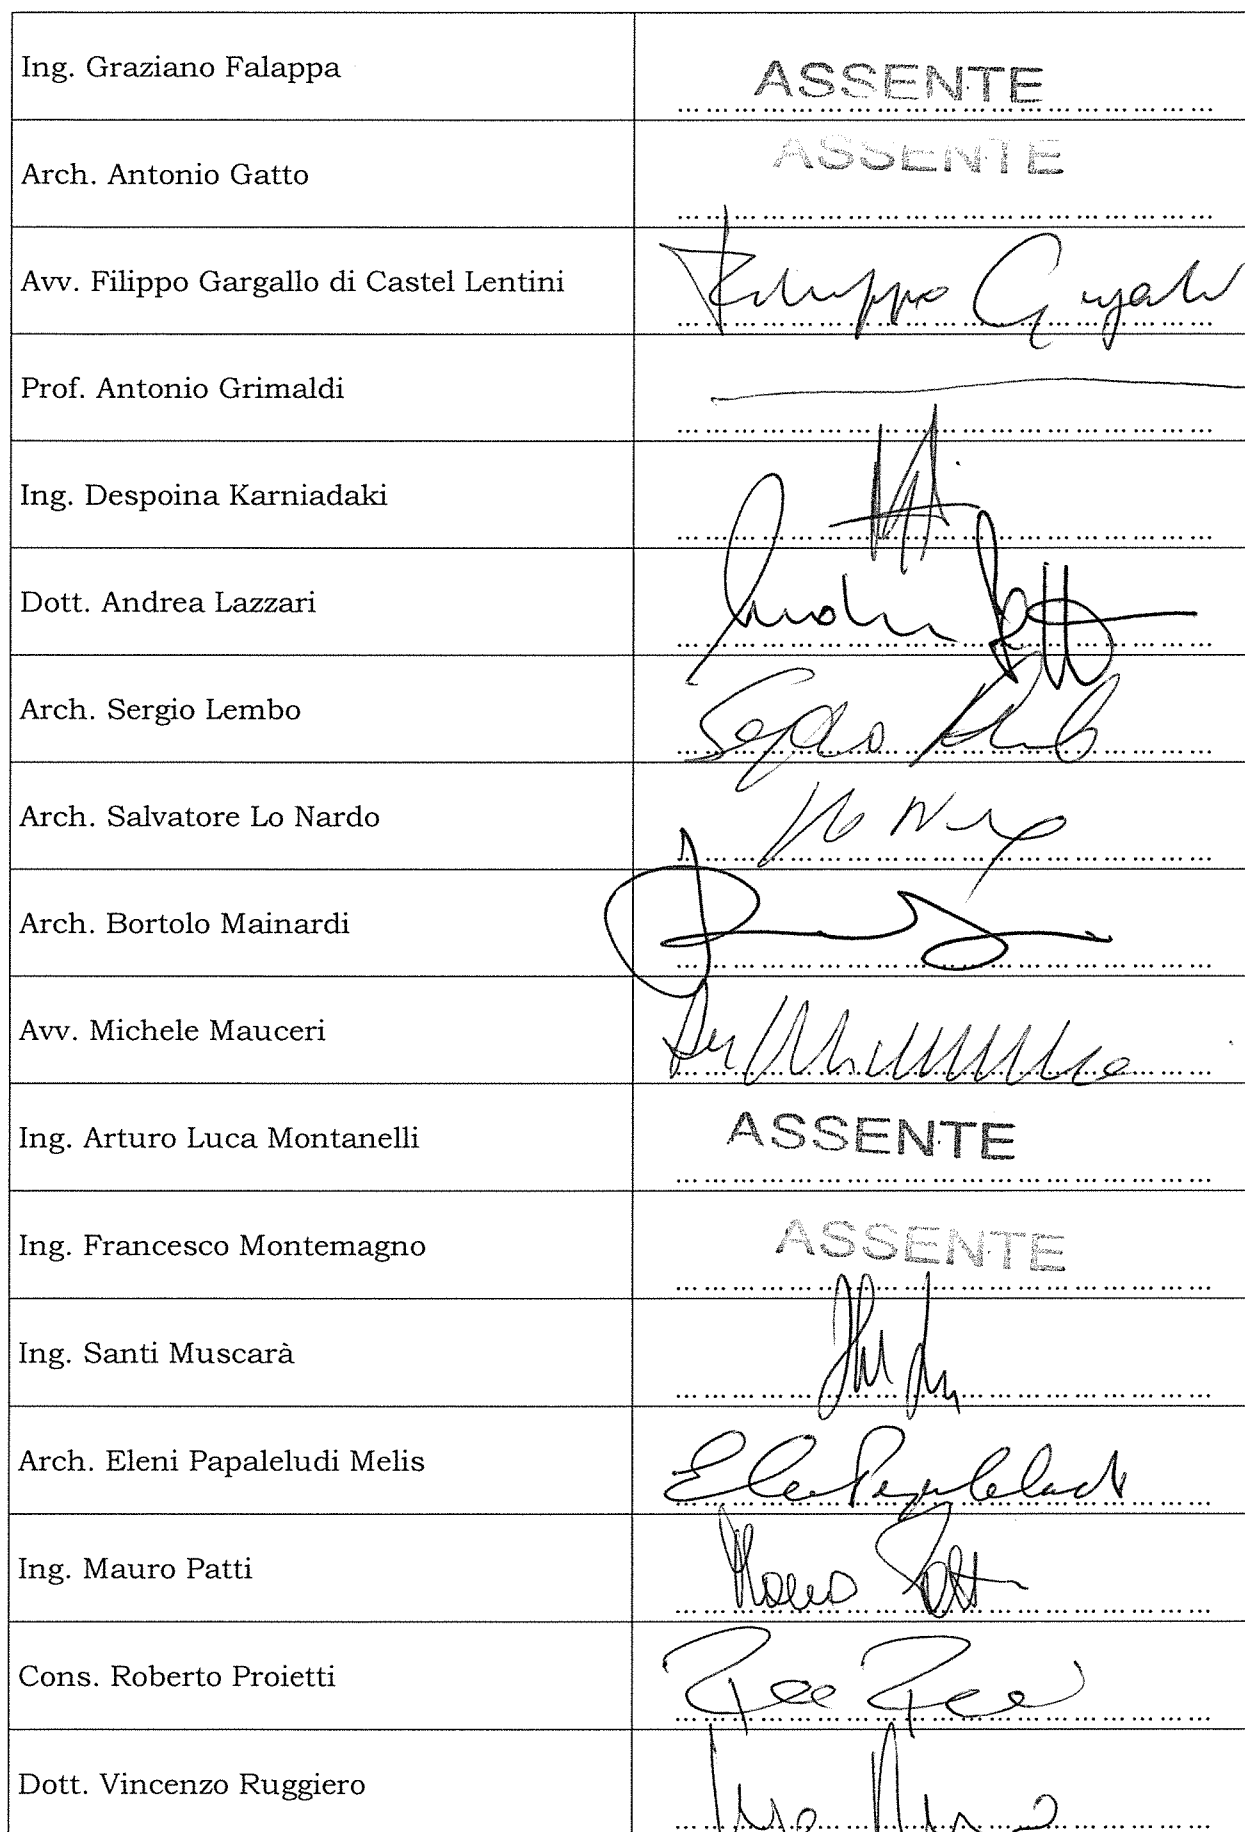 Ing. Graziano Falappa
ASSENTE
Arch. Antonio Gatto
ASSENTE
Avv. Filippo Gargallo di Castel Lentini
Filippo Gargallo
Prof. Antonio Grimaldi
Ing. Despoina Karniadaki
Dott. Andrea Lazzari
Arch. Sergio Lembo
Sergio Lembo
Arch. Salvatore Lo Nardo
Arch. Bortolo Mainardi
Avv. Michele Mauceri
Ing. Arturo Luca Montanelli
ASSENTE
Ing. Francesco Montemagno
ASSENTE
Ing. Santi Muscarà
Arch. Eleni Papaleludi Melis
Ing. Mauro Patti
Mauro Patti
Cons. Roberto Proietti
Dott. Vincenzo Ruggiero